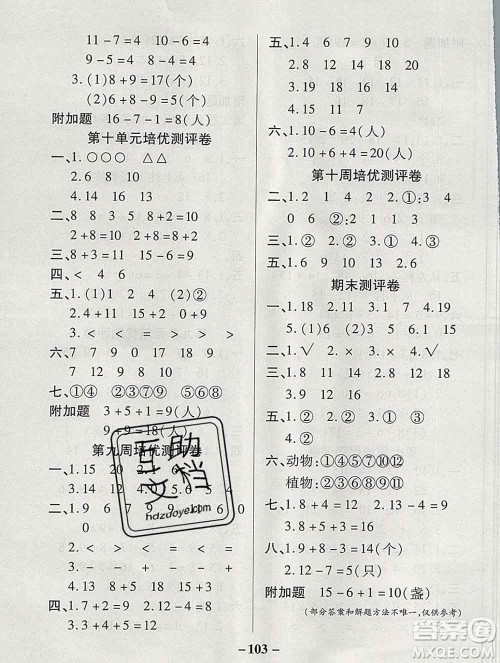 11-7=4 10-6=4
3.(1)8+9=17(个)
(2)6+9=15(个)
附加题 16-8=8(人)
第十单元培优测评卷
一、1.○○○ △△
2.6 8 10
4.15 14 13
二、8 8 3 5 8+2=10
2+8=10 9 7 2 9
三、8+9=17 4+11=15
四、< 4 6
五、1.(1)(2) 2.(2)②
3.> < = < > >
六、7 7 9 17 19 0
9 9 18 12 15 13
七、①④ ②③⑦⑨ ⑤⑥⑧
附加题 3+5+1=9(人)
9+9=18(人)
第九周培优测评卷
一、1.15
3.14 12
二、1.0 6 9
2.< < = =
3.> < = >
三、1.13-2=11
2.8+8=16
四、1.7+2=9 2.9+7=16
五、1.4 6 7 9 10
2.8 9 10 13
3.4 9 14
4.15 11
六、1.10-6=4(人)
2.10+6+4=20(人)
第十周培优测评卷
二、1.2 4 2.①;3 4
0 6 ②;2 0
三、1.② 2.① 3.④ 4.①
5.③
四、1.8 31 12 15 2.6
期末测评卷
一、1.18 2.11 7 4.9
5.(1)6 ④ (2)19 15
二、1.√ 2.× 3.× 4.√
三、1.③ 2.③ 3.④ 4.②
四、17 16 8 15 7
3 10 7 18
五、11 13 18 10 9
六、动物:①④⑤⑦⑩⑫
植物:②③⑥⑧⑨⑪
七、1.9+3=12
2.4+12=16
八、1.8+2=10(人)
2.12-7=5(只)
附加题 15-6+1=10(盏)
(部分答案和解题方法不唯一,仅供参考)
互助文档
hdzuoye.com
-103-
答案圈
MXQE.COM